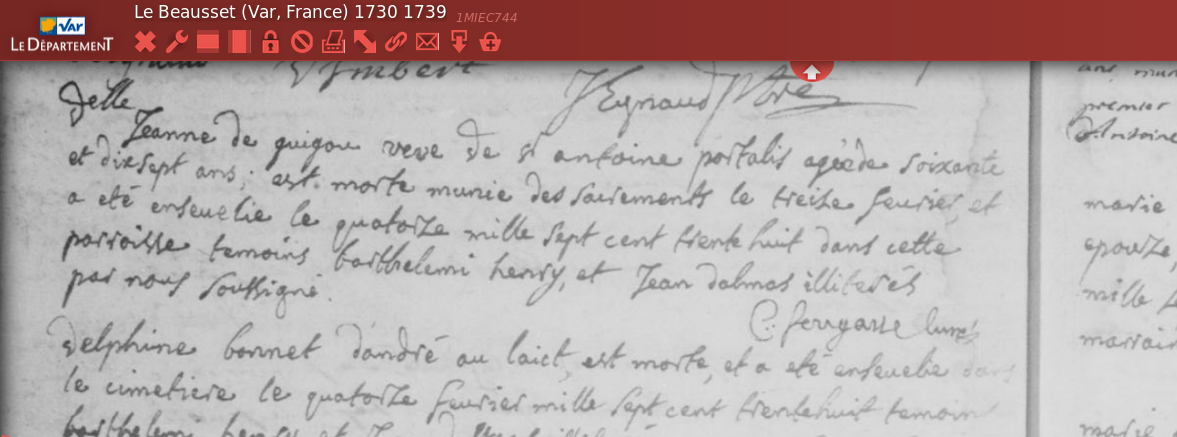 Le Beausset (Var, France) 1730 1739 1MIEC744
VAR
LE DÉPARTEMENT
Imbert
JEynaud ptre
delle
Jeanne de guigou veve de sr antoine portalis agèede soixante
et dixsept ans, est morte munie des sacrements le treize feurier, et
a eté enseuelie le quatorze mille sept cent trente huit dans cette
parroisse temoins barthelemi henry, et Jean dalmas illiterés
par nous soussigné.
C. ferrgasse
delphine bonnet d'andré au laict, est morte, et a eté enseuelie dans
le cimetiere le quatorze feurier mille sept cent trentehuit temoin
barthelemi henry et
premier
d'Antoine
marie
epouze,
mille
marie